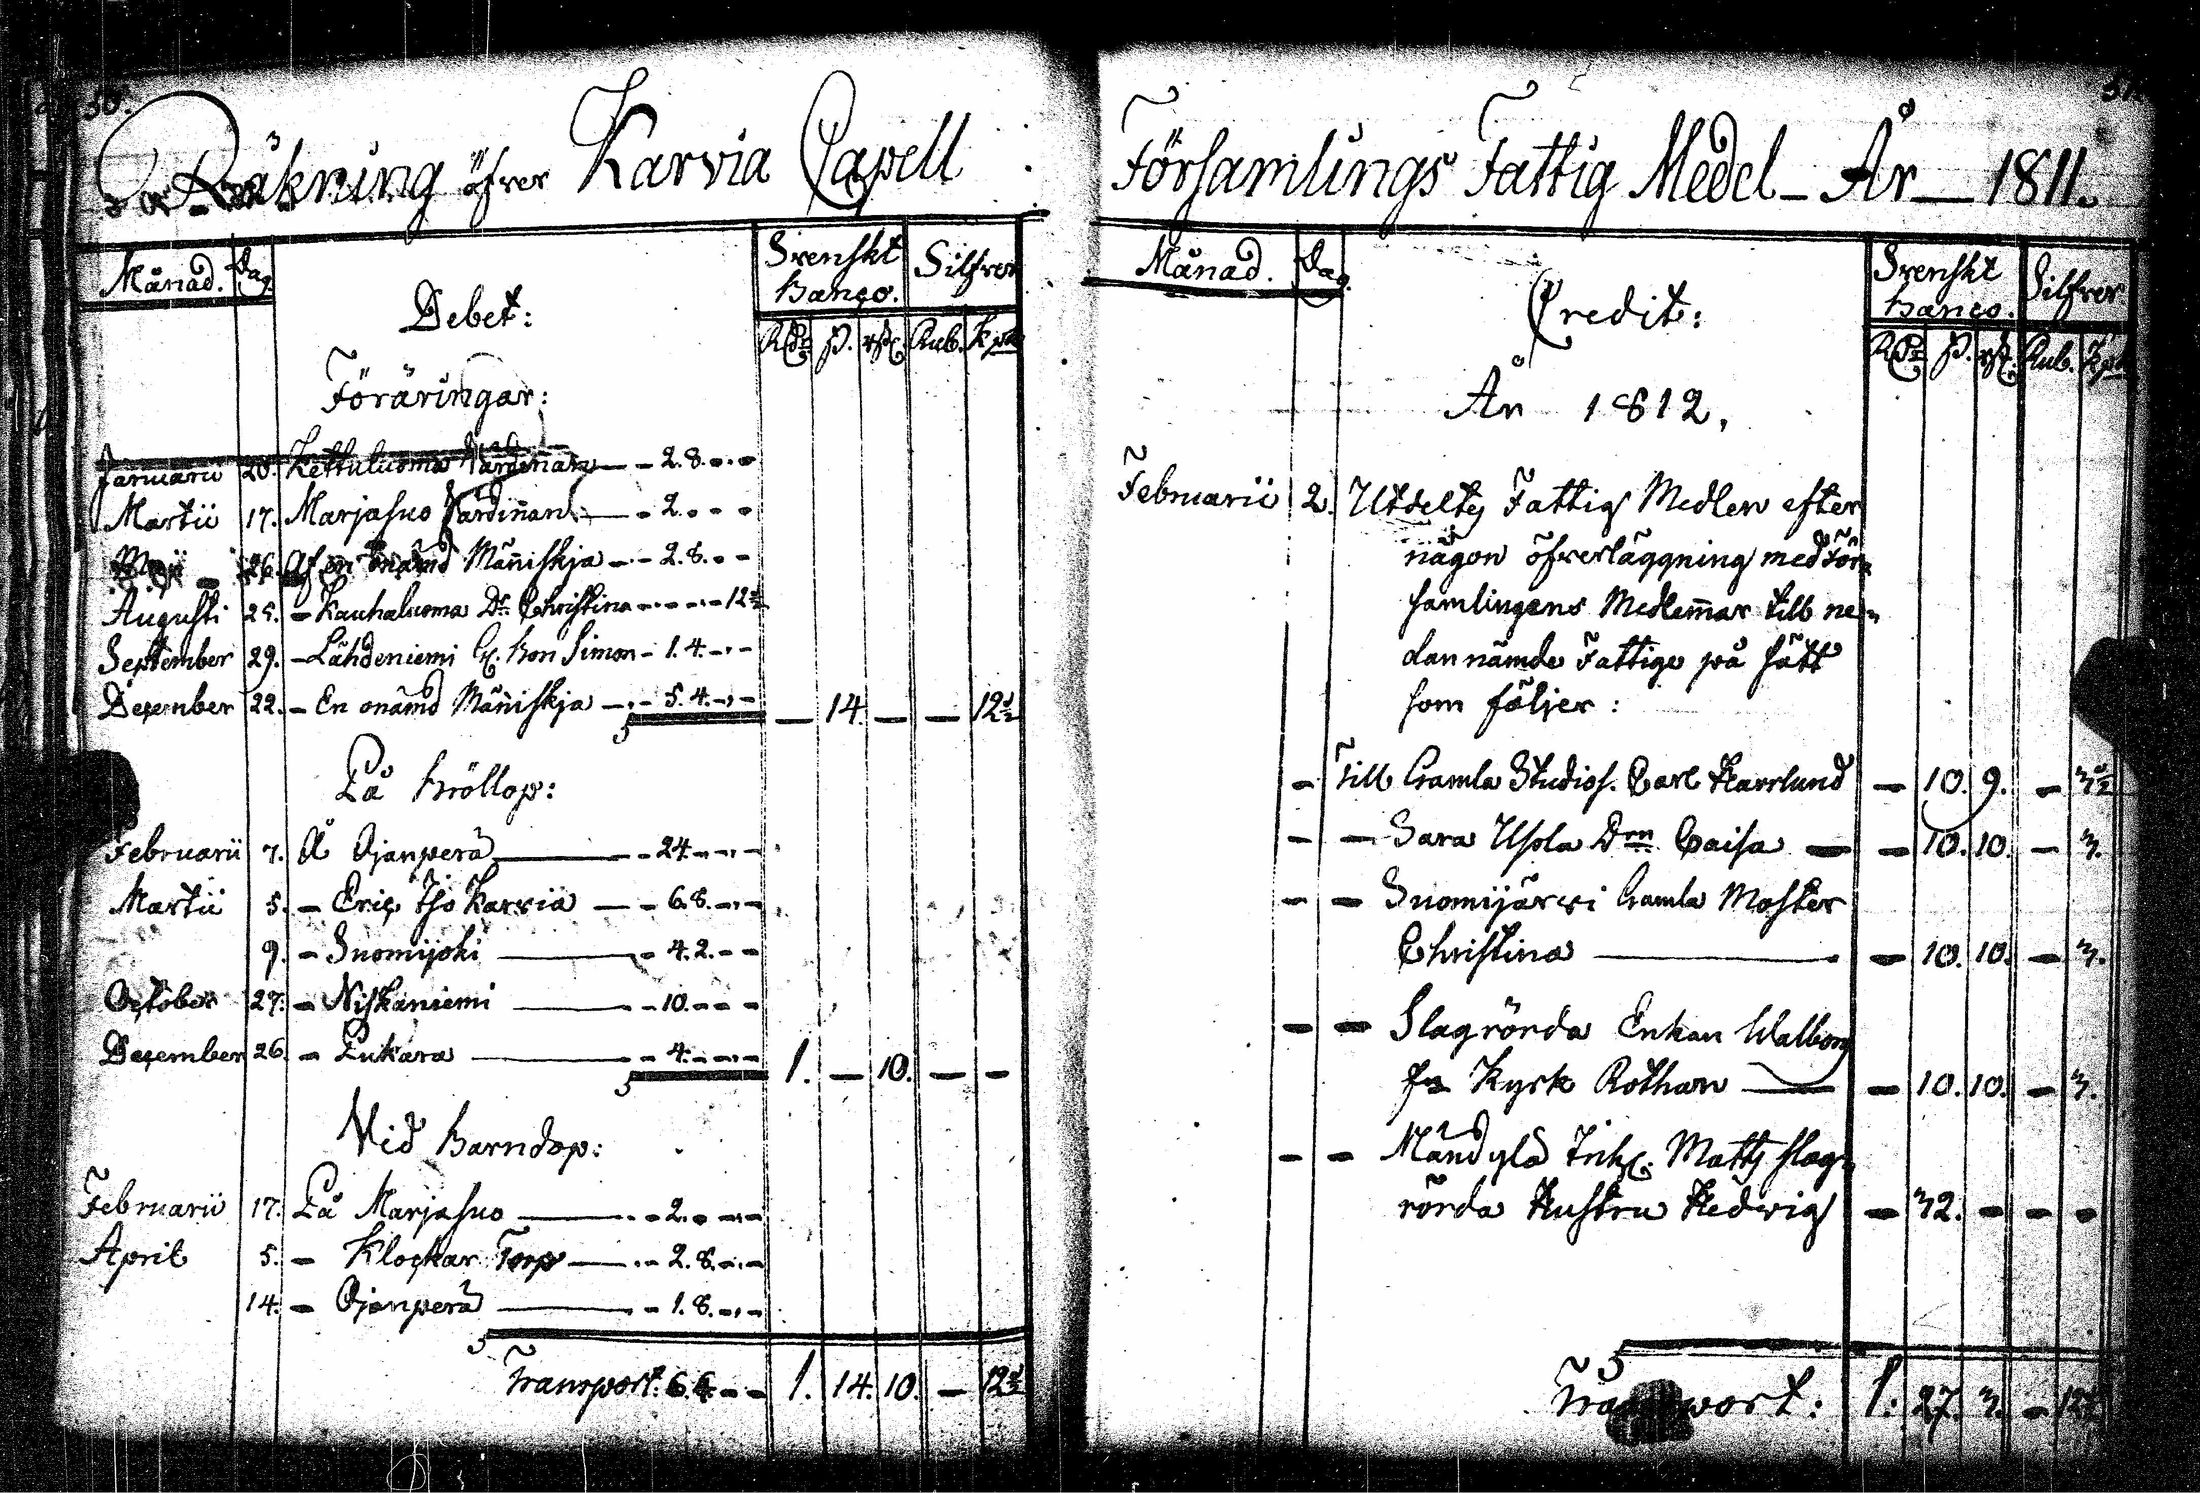 50.
Räkning öfver Karvia Capell
Månad. Dag. Debet: Svenskt Banco. Silfver
Rdr ß. rst. Rub. Kop.
Föräringar:
Januarii 20. Kettuluoma Värdinan — - 2. 8. - . -
Martii 17. Marjasuo Värdiñan — - 2. - - -
Maji 26. Af en onämd Mäñiskja - - 2. 8. - -
Augusti 25. - Kauhaluoma Dr. Christina - - - - 12½
September 29. - Lähdeniemi Bon Simon - 1. 4. - -
December 22. - En onämd Mäñiskja - - 5. 4. - - — 14. — — 12½
På Bröllop:
Februarii 7. Å Ojanperä — - 24 - - -
Martii 5. - Eric Iso Karvia — - 6. 8. - -
9. - Suomijoki — - 4. 2. - -
October 27. - Niskaniemi — - 10. - - -
December 26. - Pukara — - 4. - - - 1. — 10. — -
Vid Barndop:
Februarii 17. På Marjasuo — - 2. - - -
April 5. - Klockar Torp — - 2. 8. - -
14. - Ojanperä — - 1. 8. - -
Transport. 6. 6. - - 1. 14. 10. — 12½
51.
Församlings Fattig Medel - År — 1811.
Månad. Dag. Credit: Svenskt Banco. Silfver
Rdr ß. rst. Rub. Kop.
År 1812.
Februarii 2. Utdelty Fattig Medlen efter
någon öfverläggning med För-
samlingens Medlem̄ar till ne-
dan nämde Fattige på sätt
som följer:
- Till Gamla Studios. Carl Harlund — 10. 9. — 3½
- — Sara Usola Drn Caisa — — 10. 10. — 3.
- — Suomijärvi Gamla Moster
Christina — — 10. 10. — 3.
- — Slagrörda Enkan Walborg
Kyrk Rothan — — 10. 10. — 3.
- — Matts slag-
rörda Hustru Hedvig — 32. - - -
Transport: 1. 27. 3. — 12½